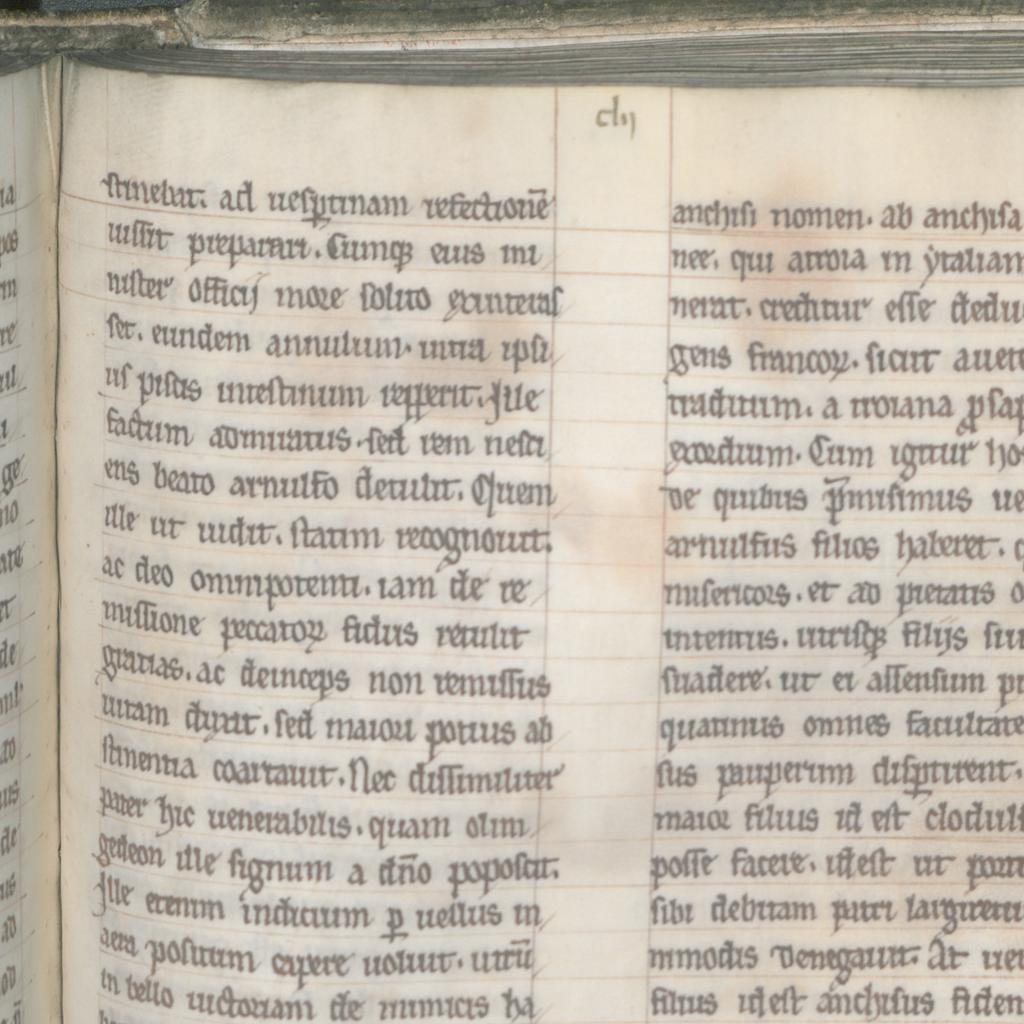 clij
stinebat. ad uesp̱tinam refectionē
iussit preparari. Cumqꝫ eius mi
nister officij more solito exinteras
set. eundem annulum. intra ipsi
us piscis intestinum repperit. Ille
factum admiratus. sed rem nesci
ens beato arnulfo detulit. Quem
ille ut uidit. statim recognouit.
ac deo omnipotenti. iam de re
missione peccatoꝝ fidus retulit
gratias. ac deinceps non remissius
uitam duxit. sed maiori potius ab
stinentia coartauit. Nec dissimiliter
pater hic uenerabilis. quam olim
gedeon ille signum a dn̄o poposcit.
Ille etenim indicium ꝑ uellus in
aera positum capere uoluit. utrū
in bello uictoriam de inimicis ha
anchisi nomen. ab anchisa
nee. qui a troia in ytaliam
nerat. creditur esse dedu
gens francoꝝ. sicut a uete
traditum. a troiana ꝓsap
exordium. Cum igitur ho
de quibus p̄misimus ue
arnulfus filios haberet.
misericors. et ad pietatis o
intentus. utrisqꝫ filijs su
suadere. ut ei assensum pr
quatinus omnes facultate
sus pauperum disꝑtirent.
maior filius id est clodul
posse facere. id est ut porti
sibi debitam patri largiretur
mmodis denegauit. At ue
filius id est anchisus fiden